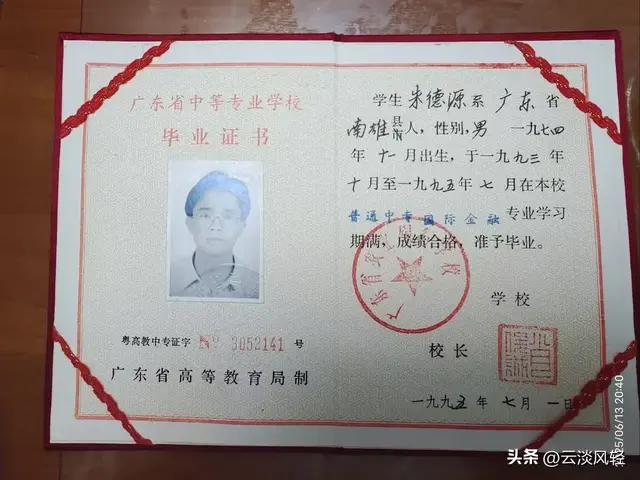 广东省中等专业学校
毕业证书
粤高教中专证字 № 3052141 号
广东省高等教育局制
学生 朱德源 系 广东 省
南雄 县市 人，性别，男 一九七四
年 十一 月出生，于一九九三 年
十 月至一九九五 年 七 月在本校
普通中专国际金融 专业学习
期满，成绩合格，准予毕业。
学校
校长
一九九五 年 七 月 一 日
2025/06/13 20:40
头条 @云淡风轻